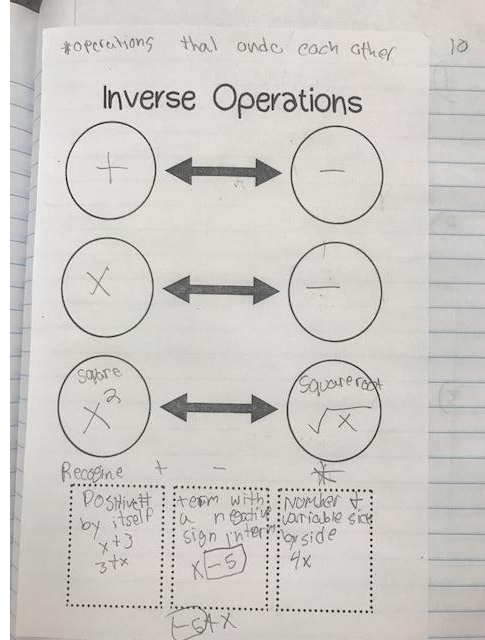 *operations that undo each other 10
Inverse Operations
+ −
X ÷
square Square root
x² √x
Recogine + − *
Positive #
by itself
x+3
3+x
term with
a negative
sign in term
x -5
Number +
Variable side
by side
4x
-5+x